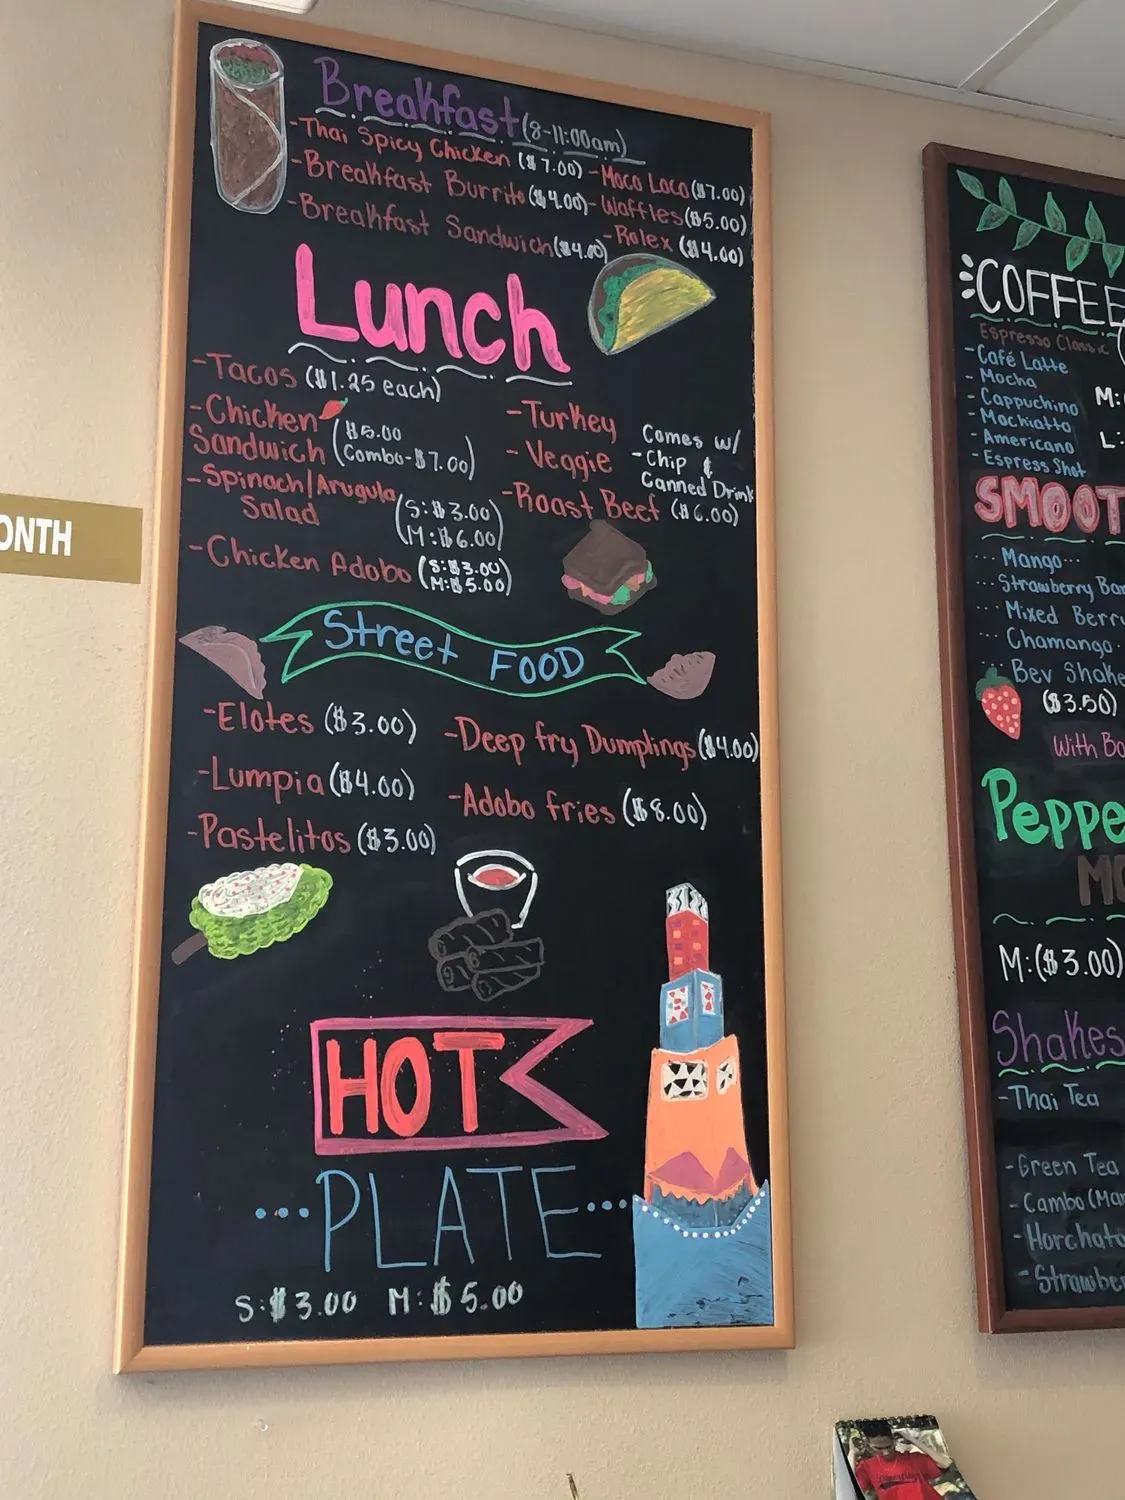 ONTH
Breakfast (8-11:00am)
-Thai Spicy Chicken ($7.00) -Moco Loco ($7.00)
-Breakfast Burrito ($4.00) -Waffles ($5.00)
-Breakfast Sandwich ($4.00) -Rolex ($4.00)
Lunch
-Tacos ($1.25 each)
-Chicken
Sandwich ($5.00
Combo-$7.00)
-Spinach/Arugula
Salad (S:$3.00
M:$6.00)
-Chicken Adobo (S:$3.00
M:$5.00)
-Turkey
-Veggie
-Roast Beef ($6.00)
Comes w/
-Chip &
Canned Drink
Street FOOD
-Elotes ($3.00)
-Lumpia ($4.00)
-Pastelitos ($3.00)
-Deep fry Dumplings ($4.00)
-Adobo fries ($8.00)
HOT
...PLATE...
S:$3.00 M:$5.00
COFFEE
Espresso Classic
-Café Latte
-Mocha
-Cappuchino
-Mochiatto
-Americano
-Espress Shot
M:
L:
SMOOT
...Mango...
...Strawberry Ban
...Mixed Berry
...Chamango
...Bev Shake
($3.50)
With Bo
Peppe
MO
M:($3.00)
Shakes
-Thai Tea
-Green Tea
-Cambo (Man
-Horchata
-Strawber